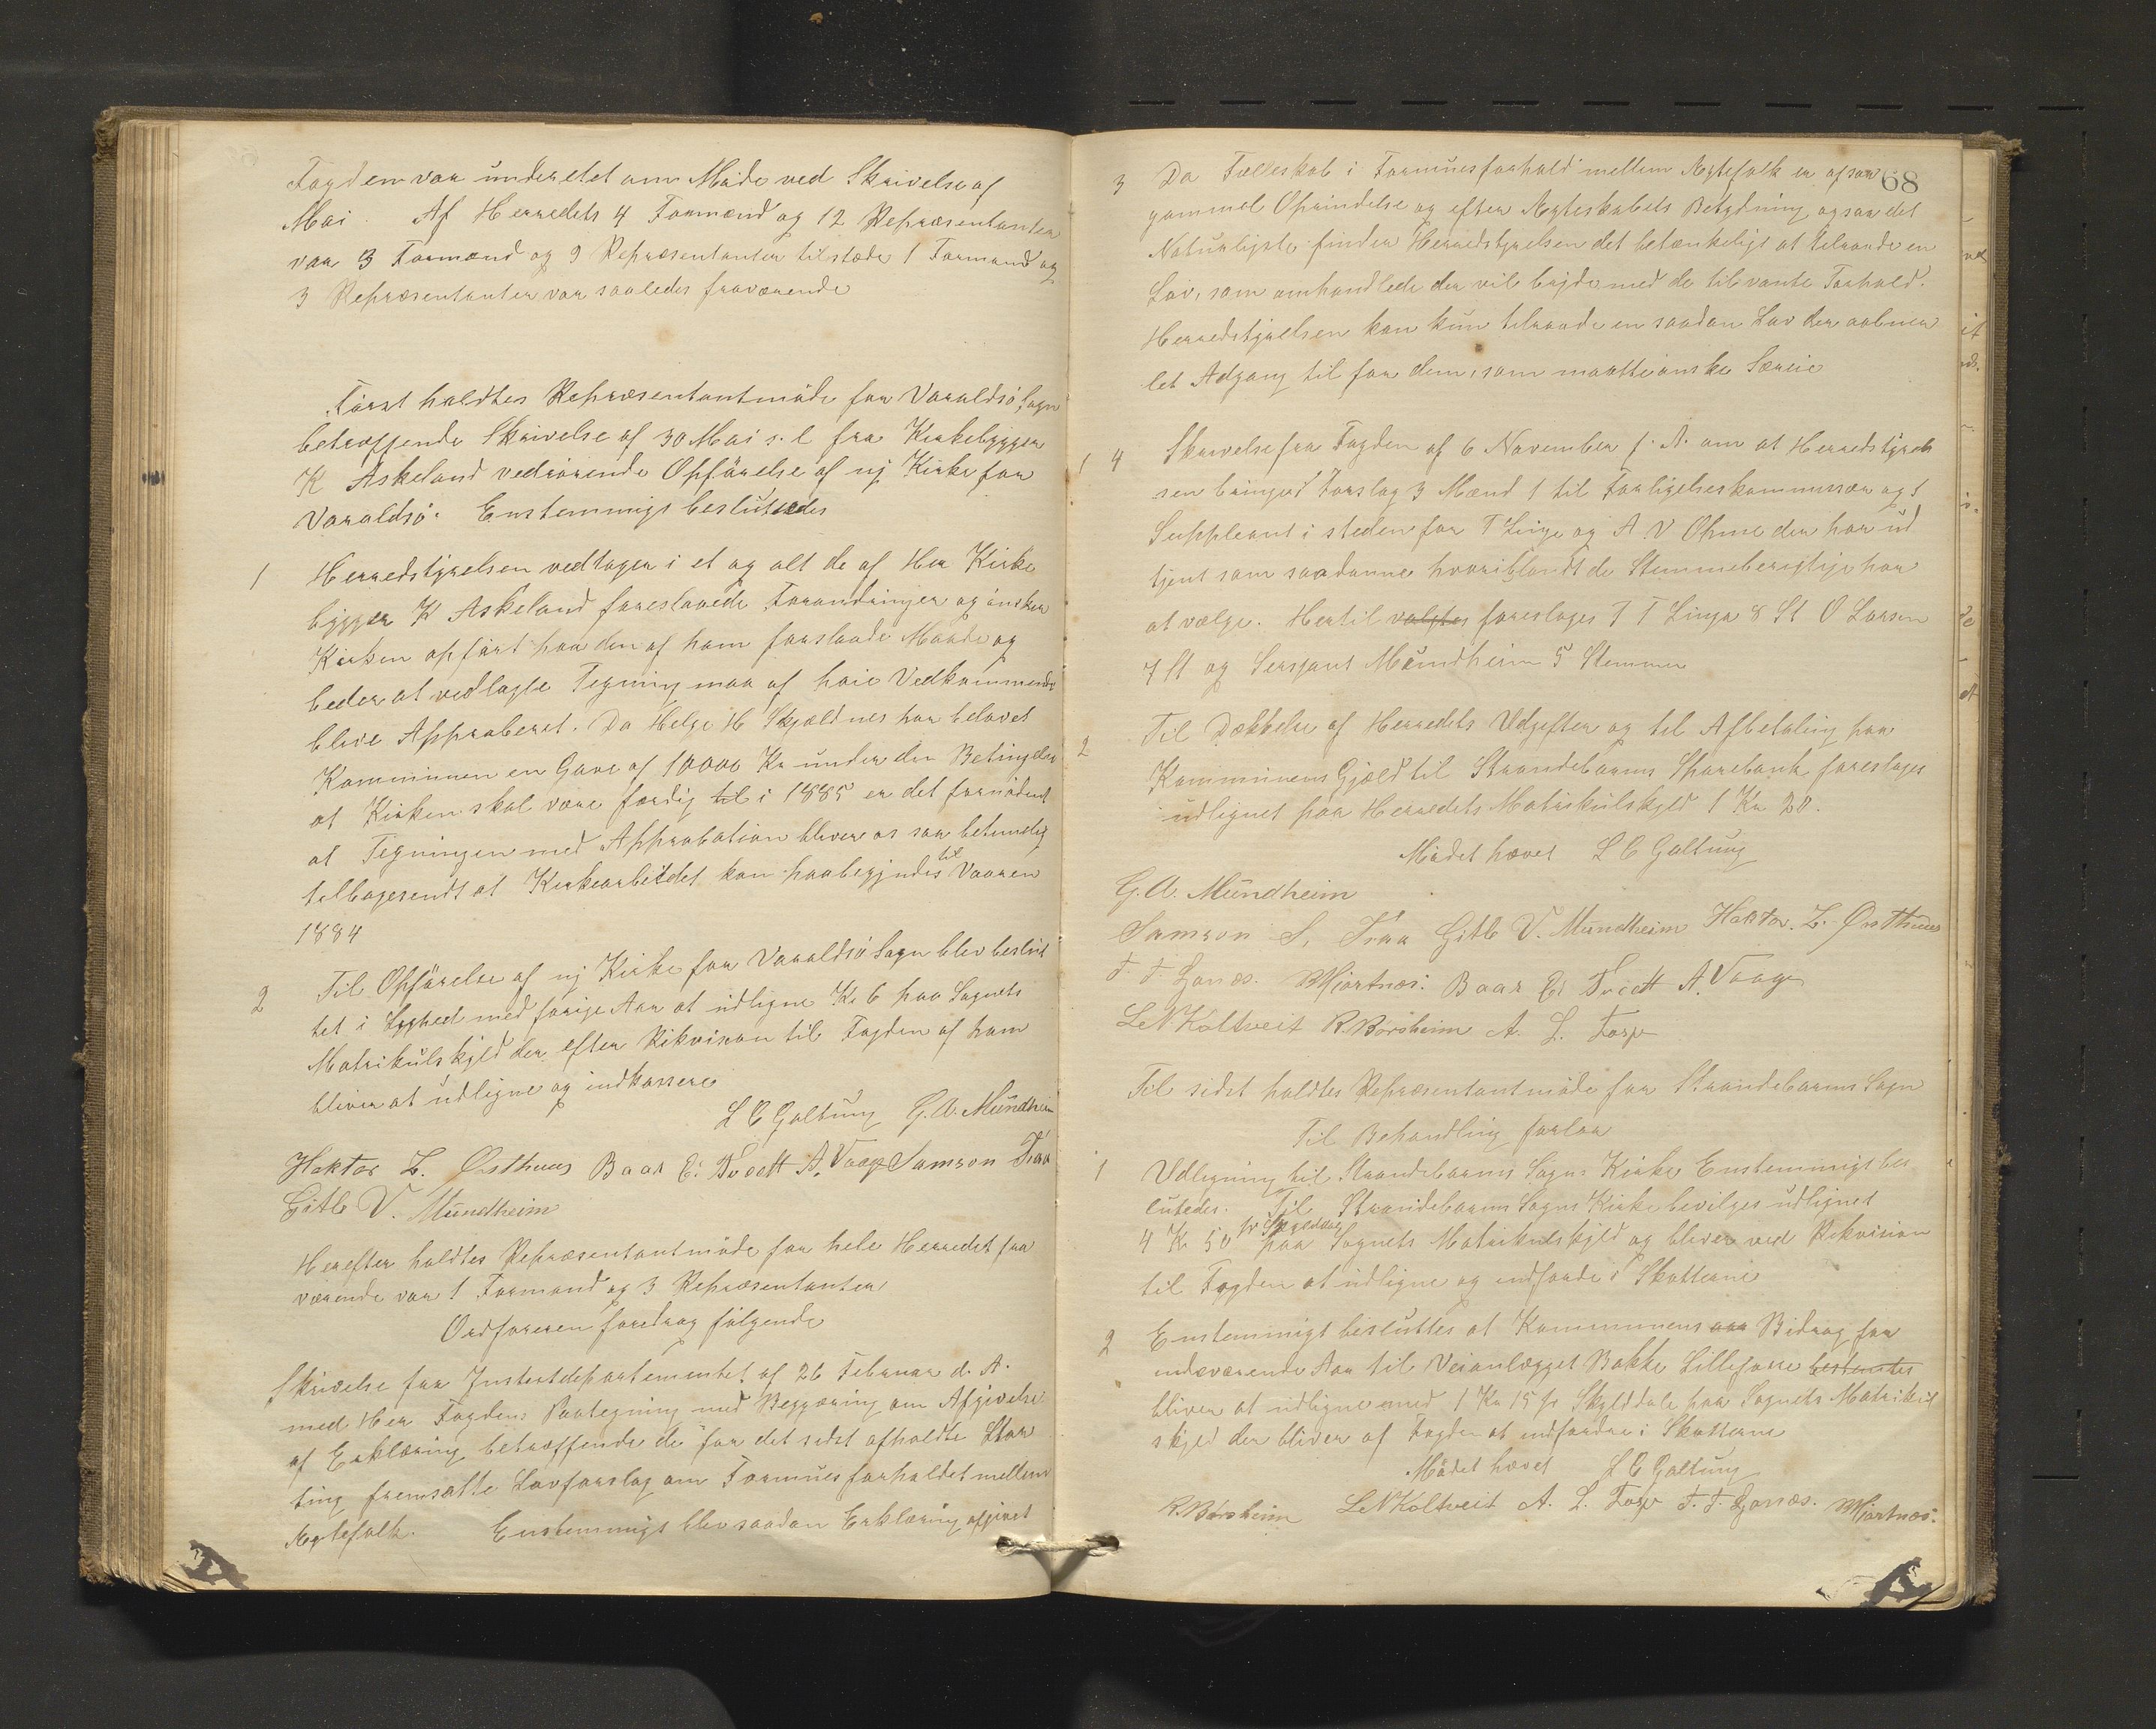 Fogden var underettet om Møde ved Skrivelse af
Mai. Af Herredets 4 Formænd og 12 Repræsentanter
var 3 Formænd og 9 Repræsentanter tilstæde 1 Formand og
3 Repræsentanter var saaledes fraværende
Først holdtes Repræsentantmøde for Varaldsö Sogn
betræffende Skrivelse af 30 Mai s. l fra Kirkebygger
K Askeland vedrörende Opförelse af ny Kirke for
Varaldsö. Enstemmigt besluttedes
1 Herredstyrelsen vedtager i et og alt de af Her Kirke
bygger K Askeland foreslaaede Forandringer og önsker
Kirken opfört paa den af ham forslaade Maade og
beder at vedlagte Tegning maa af höie Vedkommende
blive Approberet. Da Helge H Skjældnes har belovet
Kommunen en Gave af 10000 Kr under den Betingelse
at Kirken skal være færdig til i 1885 er det fornödent
at Tegningen med Approbation bliver os saa betimelig
tilbagesendt at Kirkearbeidet kan paabegyndes til Vaaren
1884
2 Til Opförelse af ny Kirke for Varaldsö Sogn blev beslut
tet i Lighed med forige Aar at udligne Kr 6 paa Sognets
Matrikulskyld der efter Rikvision til Fogden af ham
bliver at udligne og indkassere
L C Galtung G. A. Mundheim
Haktor L. Østhuus Baar E. Tvedt A. Vaage Samson Traa
Gitle V. Mundheim
Herefter holdtes Repræsentantmøde for hele Herredet fra
værende var 1 Formand og 3 Repræsentanter
Ordføreren foredrog følgende
Skrivelse fra Justitdepartementet af 26 Februar d. A.
med Her Fogdens Paategning med Begjæring om Afgivelse
af Erklæring betræffende de for det sidst afholdte Stor
ting fremsatte Lovforslag om Formuesforholdet mellem
Ægtefolk. Enstemmigt blev saadan Erklæring afgivet
68
3 Da Fælleskab i Formuesforhold mellem Ægtefolk er af saa
gammel Oprindelse og efter Ægteskabets Betydning ogsaa det
Naturligste finder Herredstyrelsen det betænkeligt at tilraade en
Lov, som omhandlede der vil bryde med de tilvante Forhold.
Herredstyrelsen kan kun tilraade en saadan Lov der aabner
let Adgang til for dem, som maatte önske Særeie
1 4 Skrivelse fra Fogden af 6 November f. A. om at Herredstyrel
sen bringe i Forslag 3 Mænd 1 til Forligelseskommissær og 1
Suppleant i steden for T Linge og A V Ohme der har ud
tjent som saadanne hvoriblandt de Stemmeberigtige har
at vælge. Hertil valgtes foreslages T T Linga 8 St O Larsen
7 St og Sersjant Mundheim 5 Stemmer
2 Til Dækkelse af Herredets Udgifter og til Afbetaling paa
Kommunens Gjæld til Strandebarms Sparebank foreslages
udlignet paa Herredets Matrikulskyld 1 Kr 20.
Mödet hævet L C Galtung
G. A. Mundheim
Samson S. Traa Gitle V. Mundheim Haktor. L. Østhuus
T. T. Ljonæs. M Hjortnæs. Baar E. Tvedt A. Vaage
L N Koltveit R. Børsheim A. L. Fosse
Til sidst holdtes Repræsentantmöde for Strandebarms Sogn
Til Behandling forlaa
1 Udligning til Strandebarms Sogns Kirke Enstemmigt bes
lutedes. Til Strandebarms Sogns Kirke bevilges udlignet
4 Kr 50 pr Skylddaler paa Sognets Matrikulskyld og bliver ved Rikvision
til Fogden at udligne og indfordre i Skatterne
2 Enstemmigt besluttes at Kommunens Bidrag for
indeværende Aar til Veianlægget Bakke Lillefosse bestemtes
bliver at udligne med 1 Kr 15 pr Skylddale paa Sognets Matrikul
skyld der bliver af Fogden at indfordre i Skatterne
Mödet hævet L C Galtung
R. Børsheim L N Koltveit A. L. Fosse T. T. Ljonæs. M Hjortnæs.